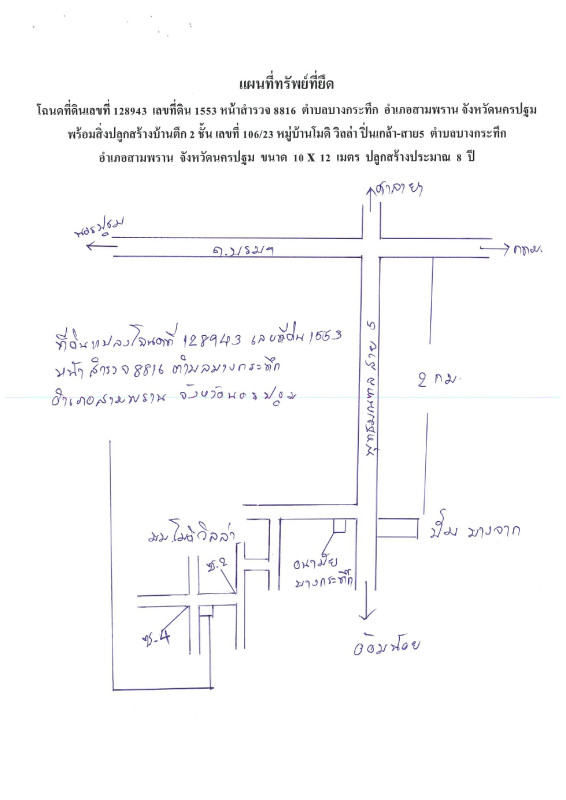 แผนที่ทรัพย์ที่ยึด
โฉนดที่ดินเลขที่ 128943 เลขที่ดิน 1553 หน้าสำรวจ 8816 ตำบลบางกระทึก อำเภอสามพราน จังหวัดนครปฐม
พร้อมสิ่งปลูกสร้างบ้านตึก 2 ชั้น เลขที่ 106/23 หมู่บ้านโมดิ วิลล่า ปิ่นเกล้า-สาย5 ตำบลบางกระทึก
อำเภอสามพราน จังหวัดนครปฐม ขนาด 10 X 12 เมตร ปลูกสร้างประมาณ 8 ปี
ศาลายา
นครปฐม
ถ.บรมฯ
กทม.
ที่ดินแปลงโฉนดที่ 128943 เลขที่ดิน 1553
หน้าสำรวจ 8816 ตำบลบางกระทึก
อำเภอสามพราน จังหวัดนครปฐม
พุทธมณฑล สาย 5
2 กม.
มบ.โมดิวิลล่า
ซ.2
อนามัย
บางกระทึก
ปั๊ม บางจาก
ซ.4
อ้อมน้อย